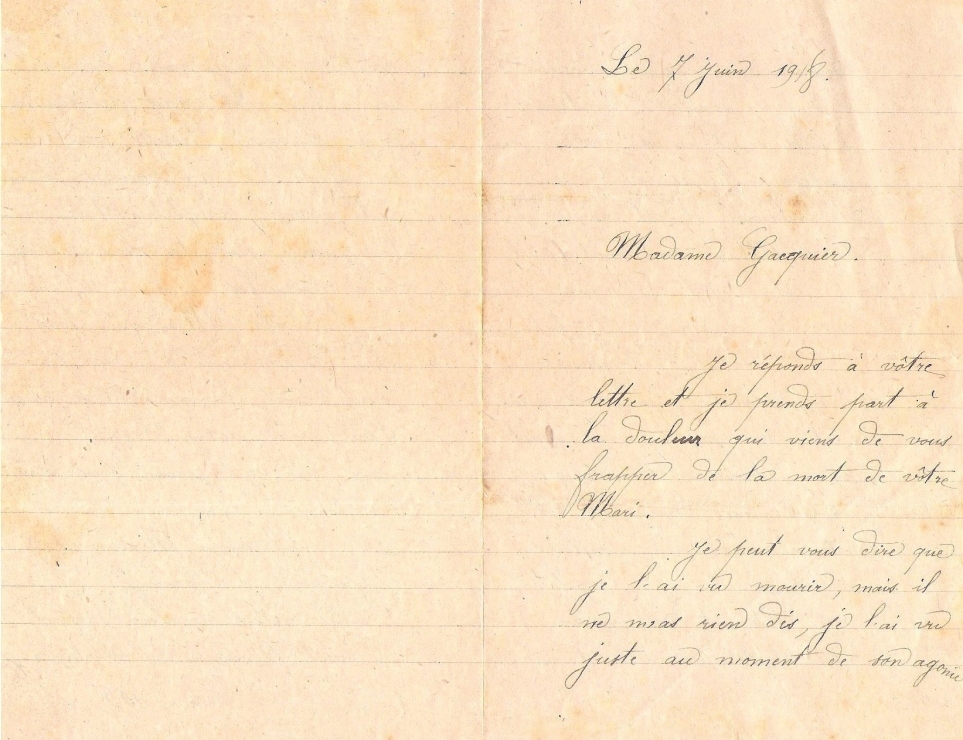 Le 7 Juin 1918.
Madame Gacquier.
Je réponds à vôtre
lettre et je prends part à
la douleur qui viens de vous
frapper de la mort de vôtre
Mari.
Je peut vous dire que
je l'ai vu mourir, mais il
ne m'as rien dis, je l'ai vu
juste au moment de son agonie